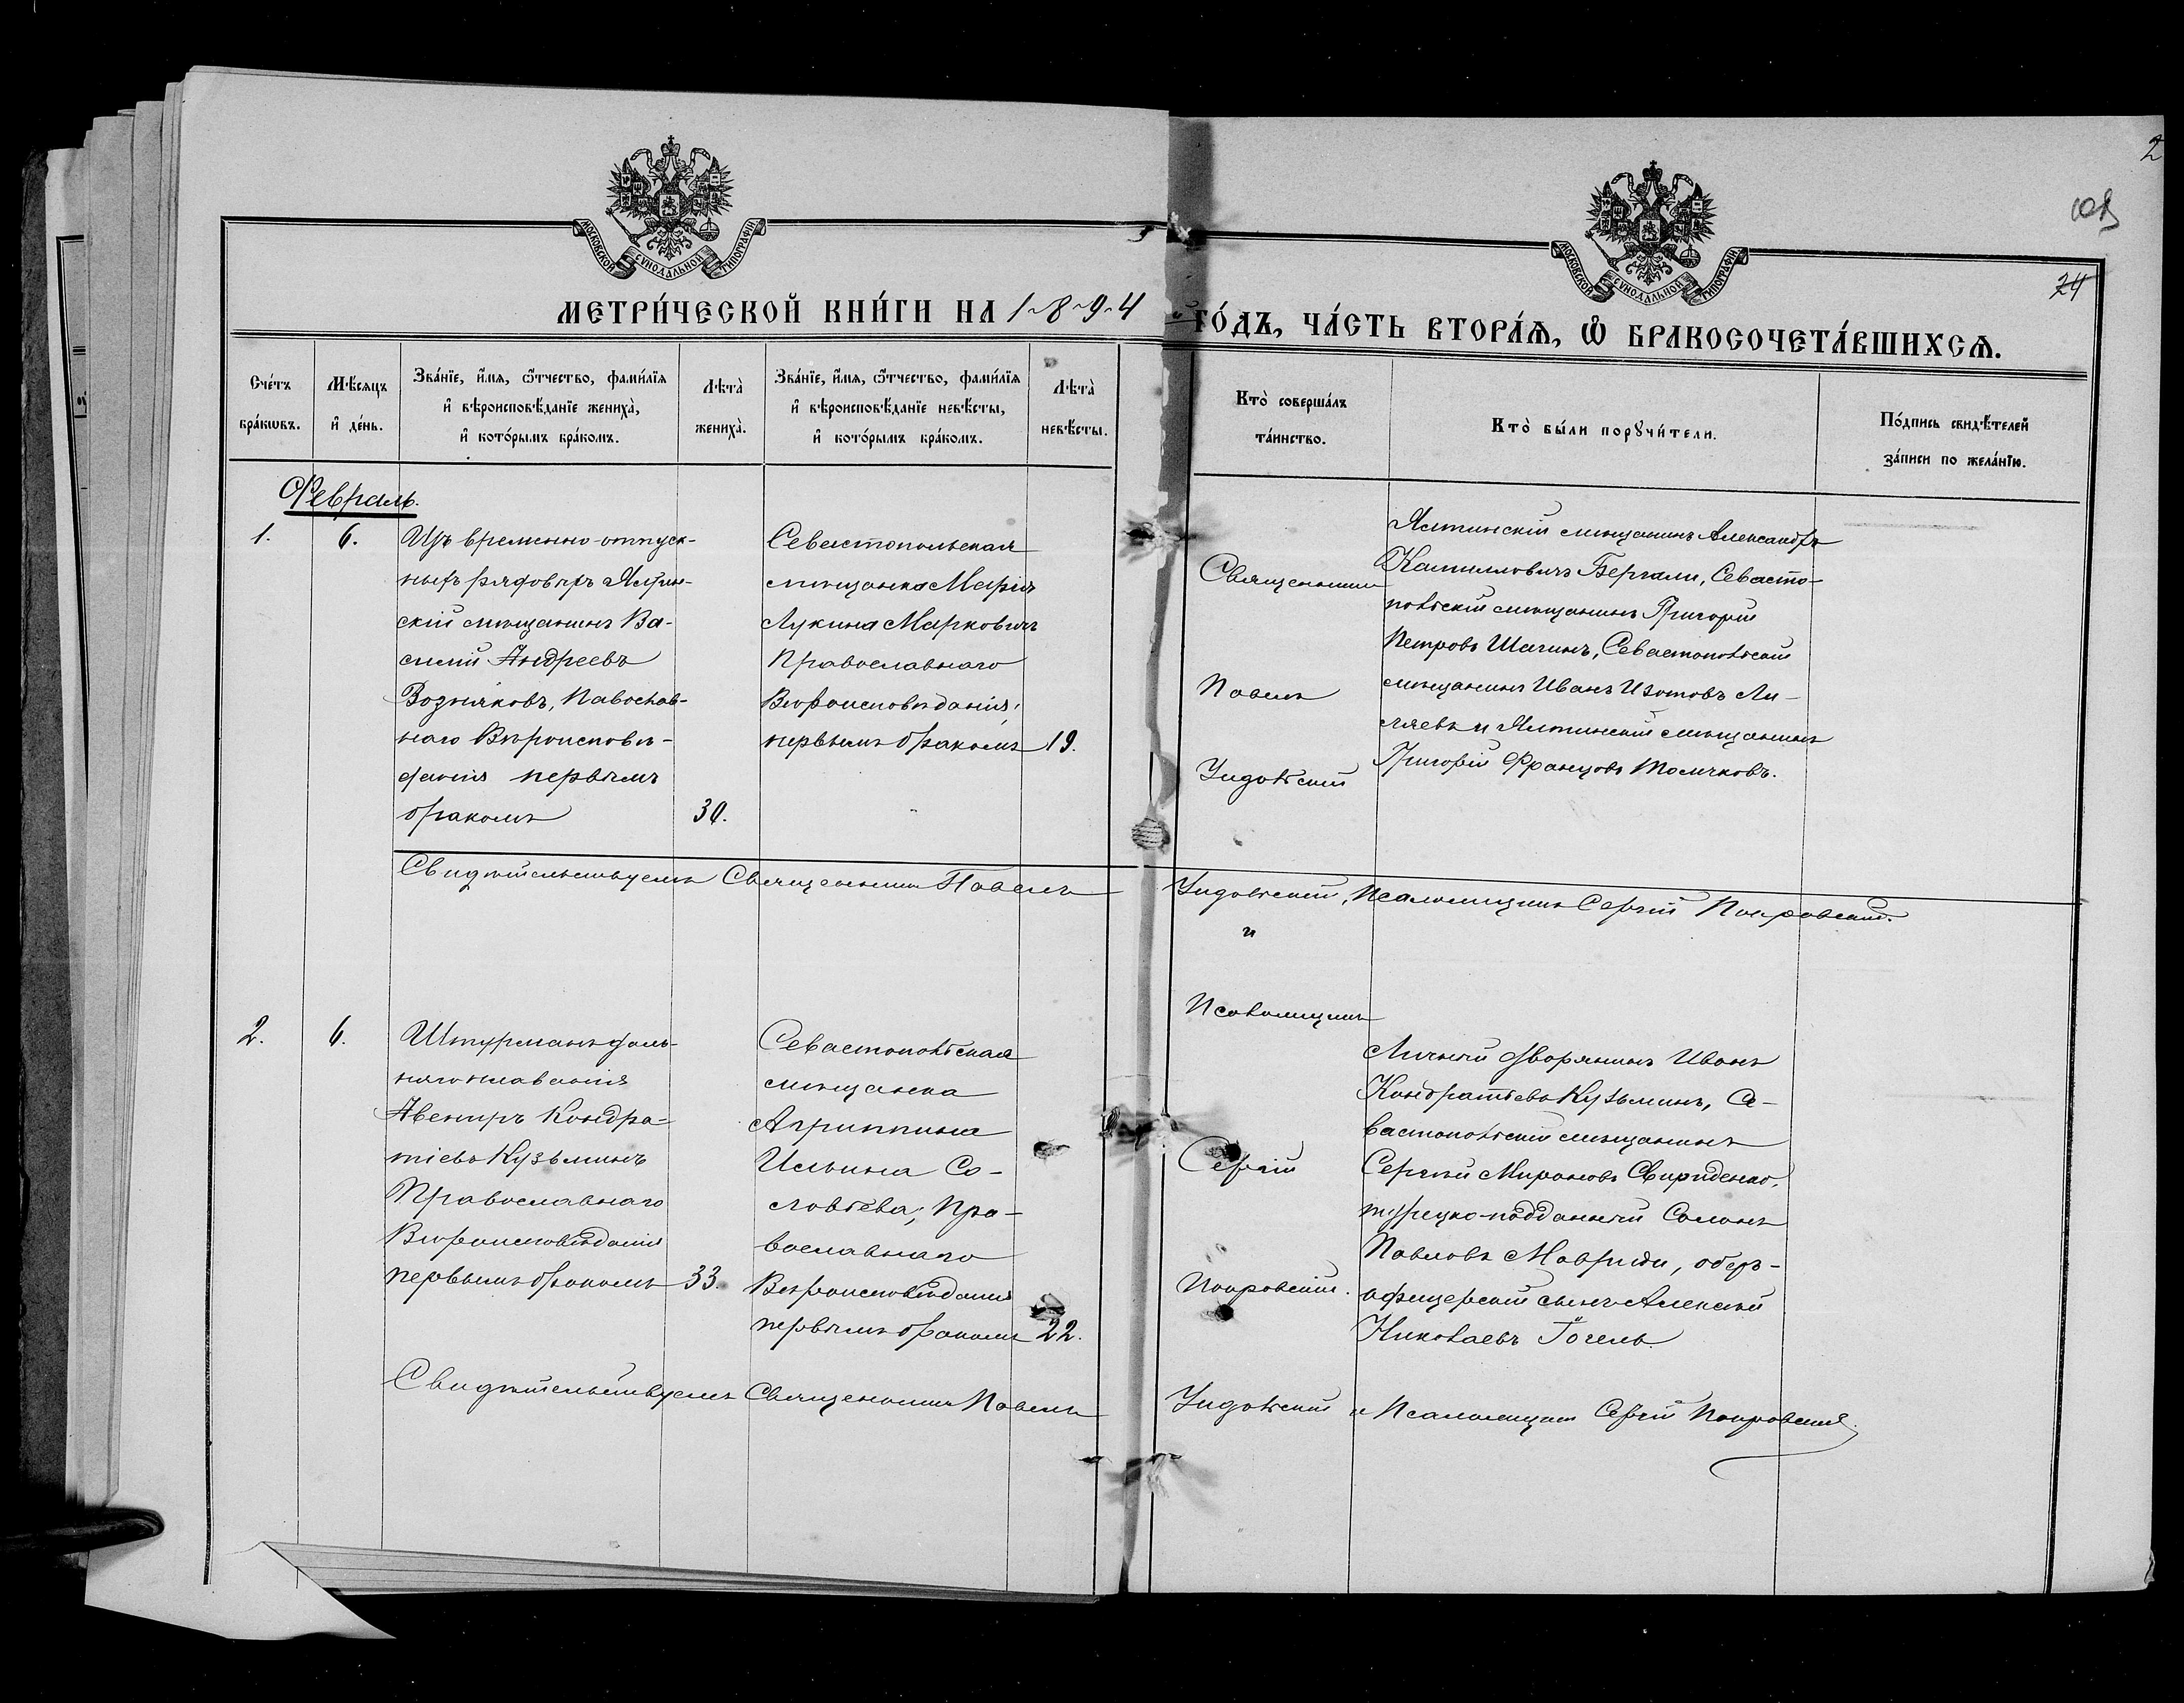 МОСКОВСКОЙ СѴНОДАЛЬНОЙ ТИПОГРАФІИ
МОСКОВСКОЙ СѴНОДАЛЬНОЙ ТИПОГРАФІИ
2
24
МЕТРИ́ЧЕСКОЙ КНИ́ГИ НА 1894 й ГО́ДЪ, ЧА́СТЬ ВТОРА́Ѧ, Ѡ҆ БРАКОСОЧЕТА́ВШИХСѦ.
Сче́тъ
бра́кѡвъ.
Мѣ́сяцъ
и҆ де́нь.
Зва́нїе, и҆́мѧ, ѻ҆́тчество, фами́лїѧ
и҆ вѣроисповѣ́данїе жениха̀,
и҆ кото́рымъ бра́комъ.
Лѣта̀
жениха̀.
Зва́нїе, и҆́мѧ, ѻ҆́тчество, фами́лїѧ
и҆ вѣроисповѣ́данїе невѣ́сты,
и҆ кото́рымъ бра́комъ.
Лѣта̀
невѣ́сты.
Кто̀ соверша́лъ
та́инство.
Кто̀ бы́ли порꙋчи́тели.
По́дпись свидѣ́телей
за́писи по жела́нїю.
Февраль.
1.
6.
Изъ временно-отпуск-
ныхъ рядовыхъ Ялтин-
скій мѣщанинъ Ва-
силій Андреевъ
Возняковъ, Павослав-
наго Вѣроисповѣ-
данія первымъ
бракомъ
30.
Севастопольская
мѣщанка Марія
Лукина Марковичъ
Православнаго
Вѣроисповѣданія,
первымъ бракомъ
19.
Священникъ
Павелъ
Ундольскій
и
Псаломщикъ
Сергій
Покровскій.
Ялтинскій мѣщанинъ Александръ
Севасто-
польскій мѣщанинъ Григорій
Петровъ Шагинъ, Севастопольскій
мѣщанинъ Иванъ Изотовъ Ли-
ляевъ и Ялтинскій мѣщанинъ
Григорій Францовъ Томачковъ.
Свидѣтельствуемъ Священникъ Павелъ Ундольскій, Псаломщикъ Сергій Покровскій.
2.
6.
Штурманъ даль-
няго плаванія
Авениръ Кондра-
тіевъ Кузьминъ
Православнаго
Вѣроисповѣданія
первымъ бракомъ
33.
Севастопольская
мѣщанка
Агриппина
Ильина Со-
ловьева, Пра-
вославнаго
Вѣроисповѣданія
первымъ бракомъ
22.
Личный дворянинъ Иванъ
Кондратьевъ Кузьминъ, Се-
вастопольскій мѣщанинъ
Сергѣй Мироновъ Свириденко,
турецко-подданный Солонъ
Павловъ Мавриди, оберъ-
офицерскій сынъ Алексѣй
Николаевъ Гогель.
Свидѣтельствуемъ Священникъ Павелъ Ундольскій и Псаломщикъ Сергій Покровскій.